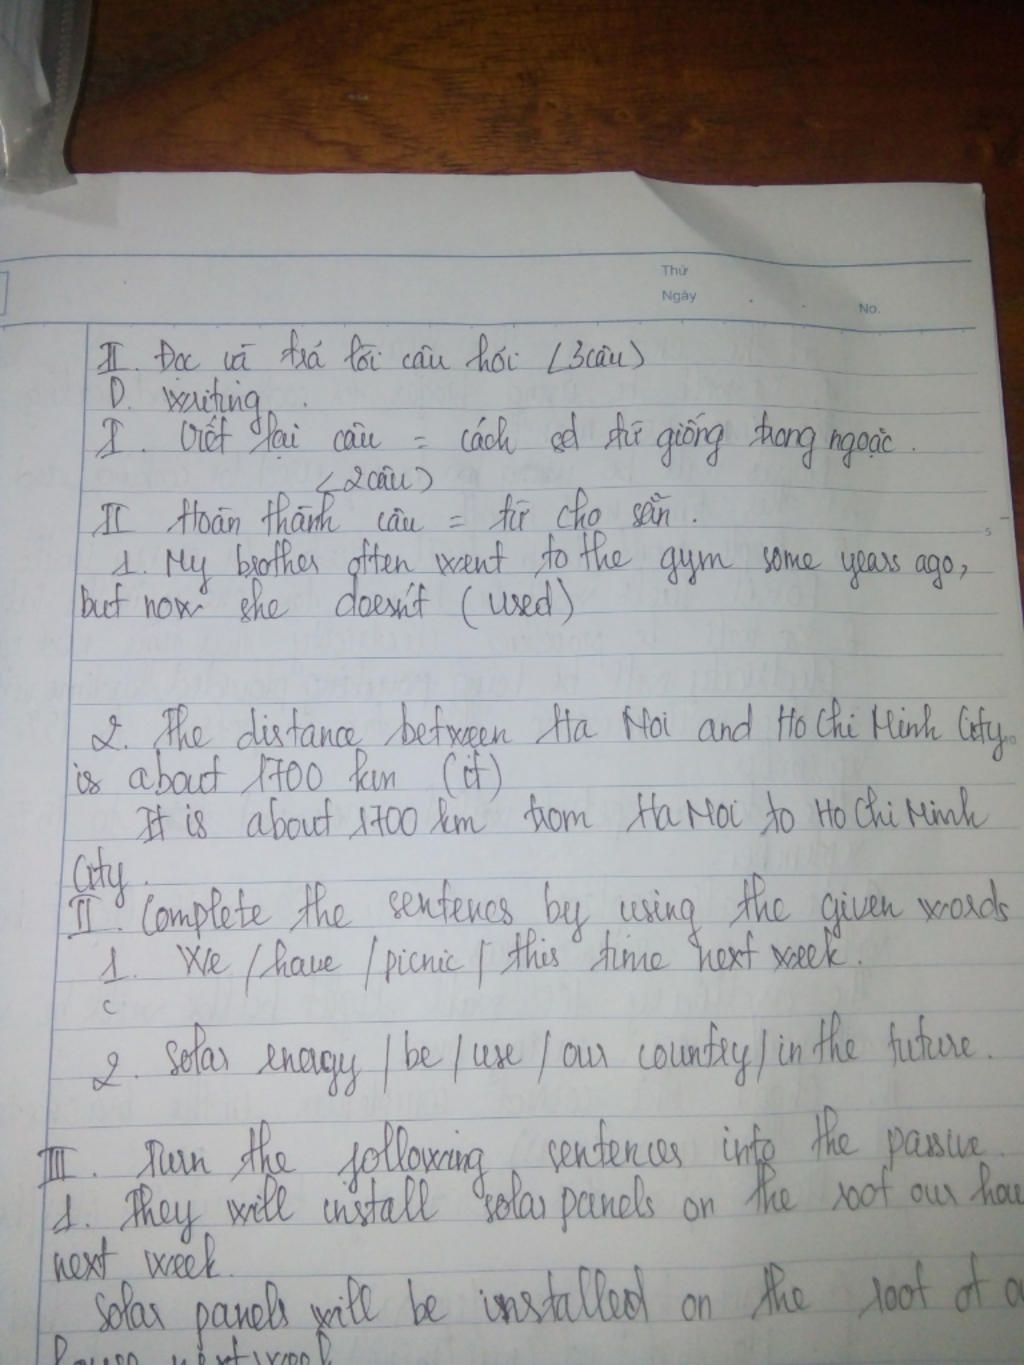 Thứ
Ngày
No.
II. Đọc và trả lời câu hỏi (3 câu)
D. Writing.
I. Viết lại câu = cách sd từ giống trong ngoặc.
(2 câu)
II Hoàn thành câu = từ cho sẵn.
1. My brother often went to the gym some years ago,
but now she doesn't (used)
2. The distance between Ha Noi and Ho Chi Minh City
is about 1700 km (it)
It is about 1700 km from Ha Noi to Ho Chi Minh
City.
II. Complete the sentences by using the given words
1. We / have / picnic / this time next week.
2. Solar energy / be / use / our country / in the future.
III. Turn the following sentences into the passive.
1. They will install solar panels on the roof our
next week.
Solar panels will be installed on the roof of
house next week